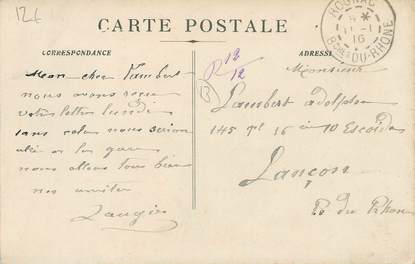 12f
CARTE POSTALE
CORRESPONDANCE
ADRESSE
ROGNAC
11-1
16
BCHES DU-RHÔNE
R 12/12
13
Mon cher Lambert
nous avons reçu
votre lettre lundi
sans cela nous
a la gare
nous allons tous bien
nos amitiés
Laugier
Monsieur
Lambert adolphe
145 16 10 Escouade
Lançon
B. du Rhône